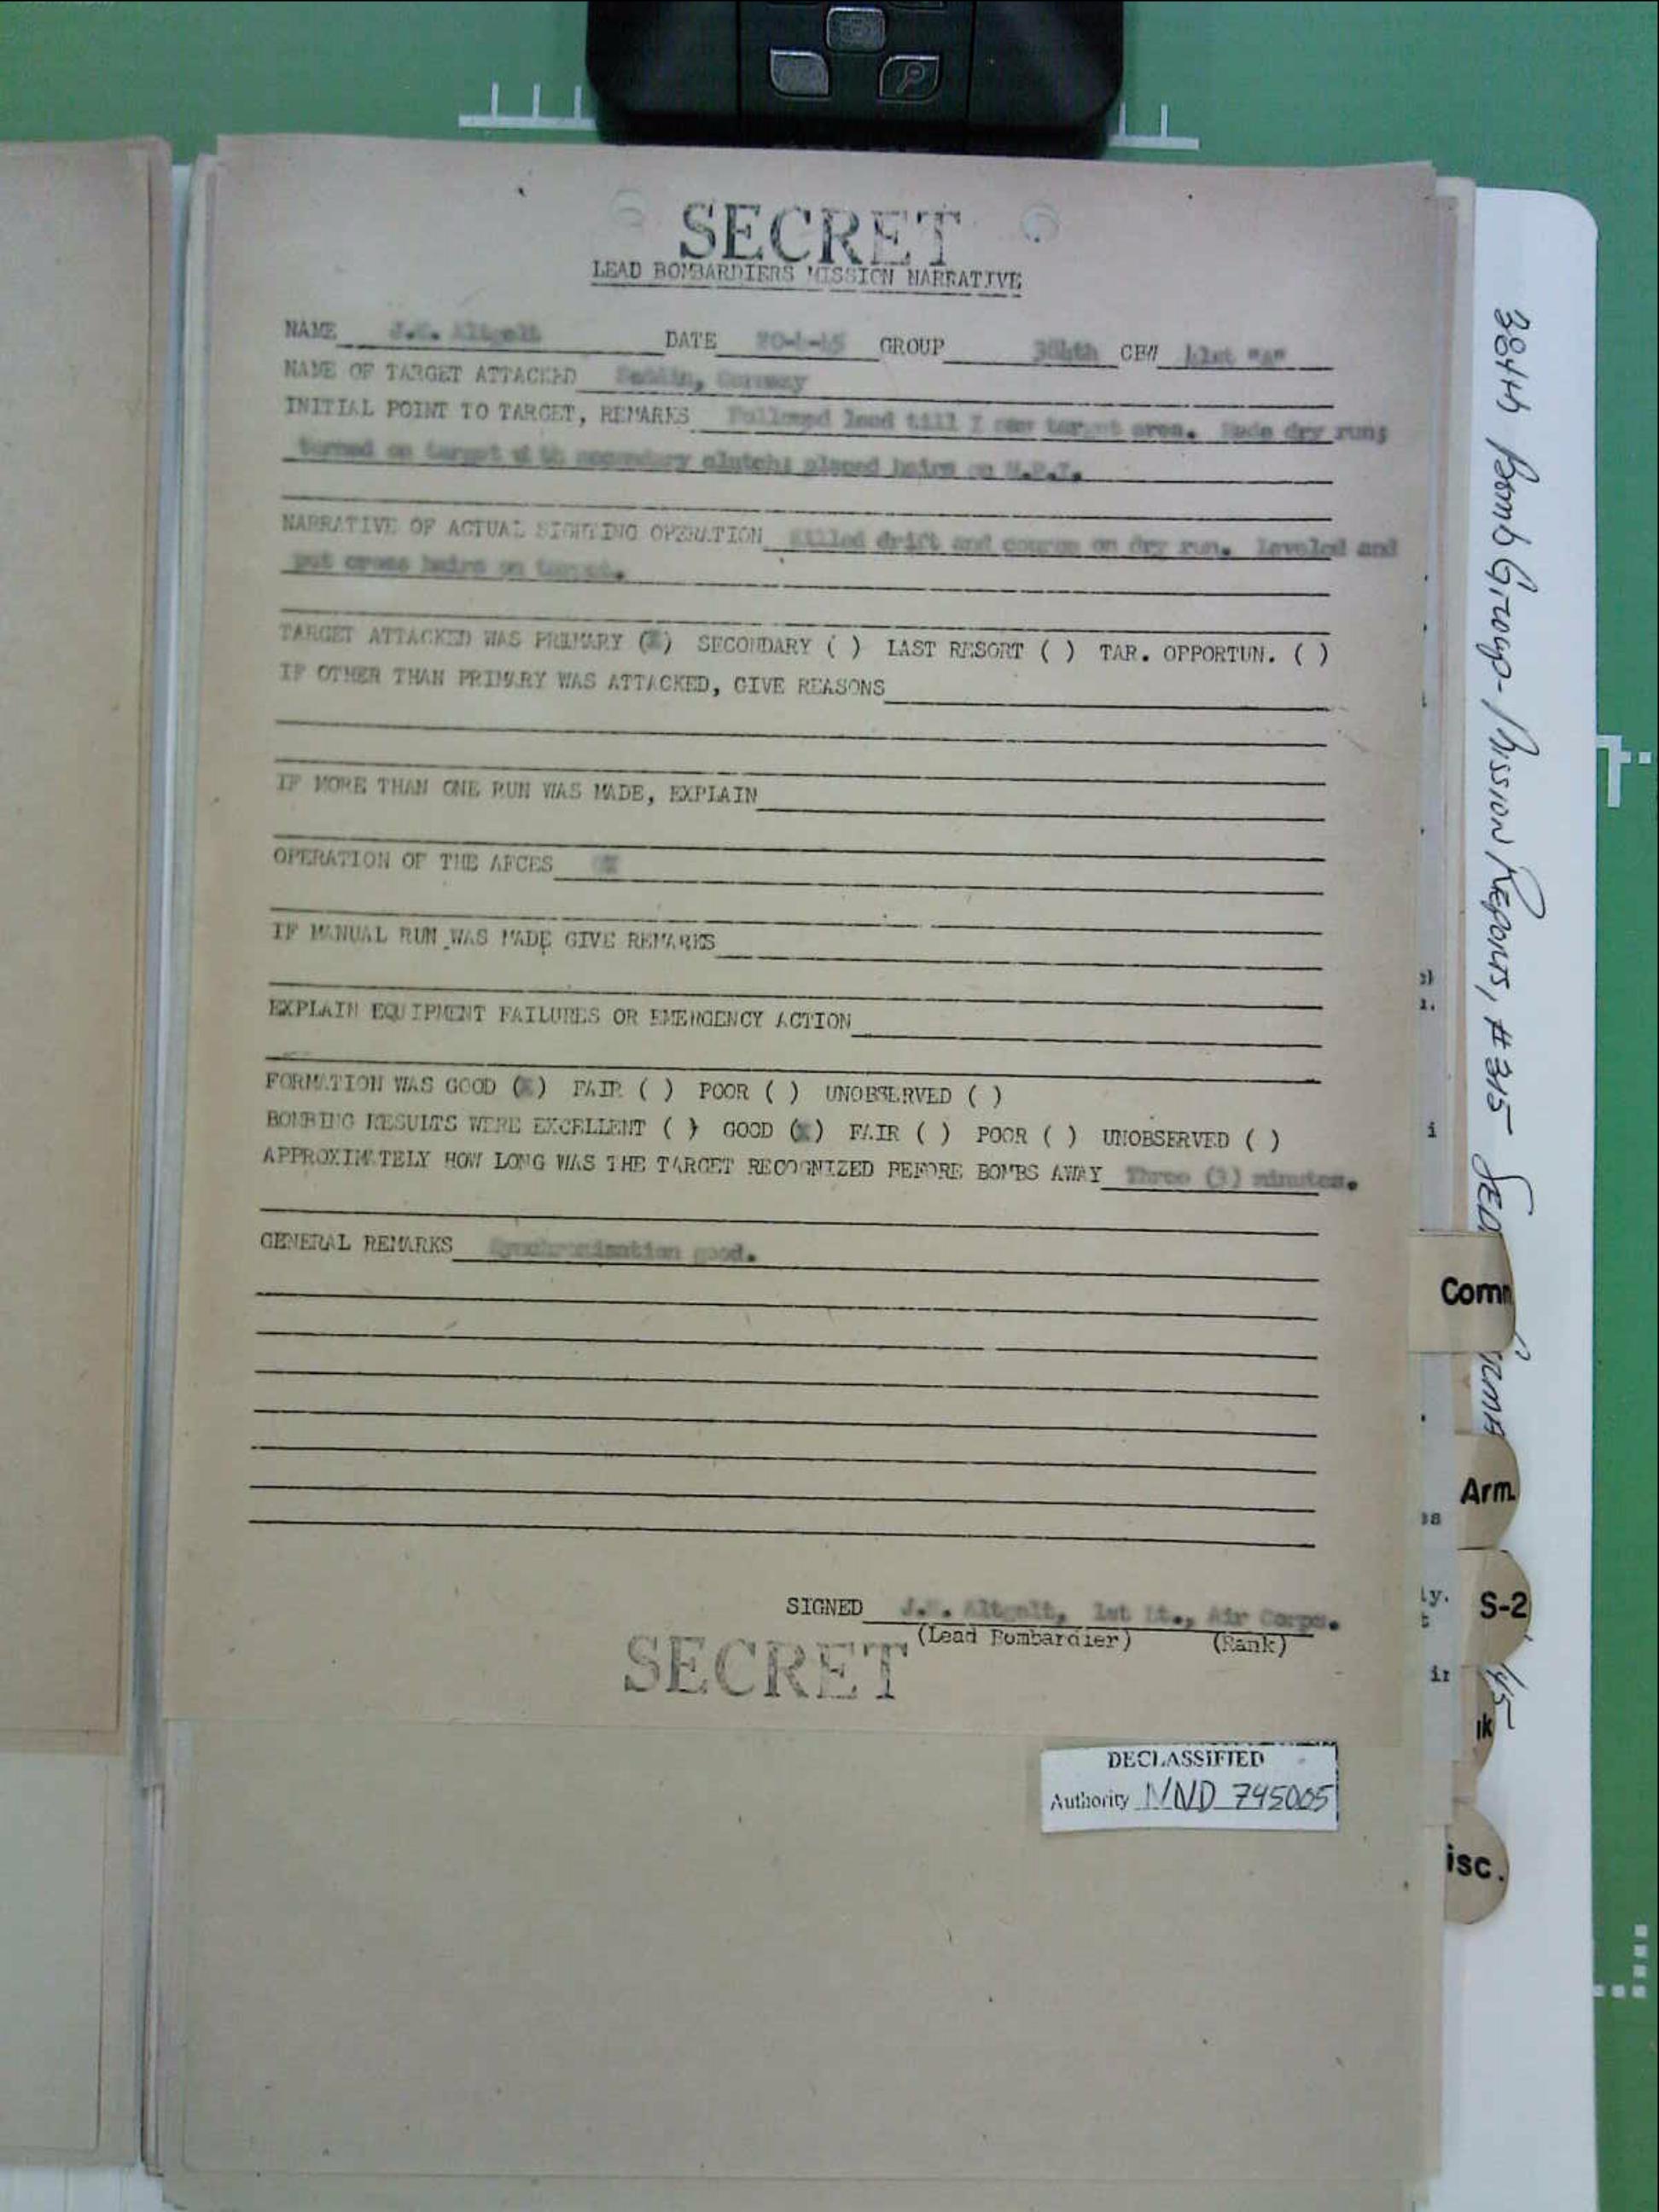 SECRET
LEAD BOMBARDIERS MISSION NARRATIVE
NAME J. Altgelt DATE 20-4-45 GROUP 384th CBW 41st "A"
NAME OF TARGET ATTACKED Germany
INITIAL POINT TO TARGET, REMARKS Followed lead till I saw target area. Made dry run;
turned on target with secondary clutch; placed hairs on M.P.I.
NARRATIVE OF ACTUAL SIGHTING OPERATION Killed drift and course on dry run. Leveled and
put cross hairs on target.
TARGET ATTACKED WAS PRIMARY (X) SECONDARY ( ) LAST RESORT ( ) TAR. OPPORTUN. ( )
IF OTHER THAN PRIMARY WAS ATTACKED, GIVE REASONS
IF MORE THAN ONE RUN WAS MADE, EXPLAIN
OPERATION OF THE AFCES OK
IF MANUAL RUN WAS MADE GIVE REMARKS
EXPLAIN EQUIPMENT FAILURES OR EMERGENCY ACTION
FORMATION WAS GOOD (X) FAIR ( ) POOR ( ) UNOBSERVED ( )
BOMBING RESULTS WERE EXCELLENT ( ) GOOD (X) FAIR ( ) POOR ( ) UNOBSERVED ( )
APPROXIMATELY HOW LONG WAS THE TARGET RECOGNIZED BEFORE BOMBS AWAY Three (3) minutes.
GENERAL REMARKS Synchronization good.
SIGNED J. Altgelt, 1st Lt., Air Corps.
(Lead Bombardier) (Rank)
SECRET
DECLASSIFIED
Authority NND 745005
384th Bomb Group - Mission Reports, #315
Com
Arm.
S-2
isc.